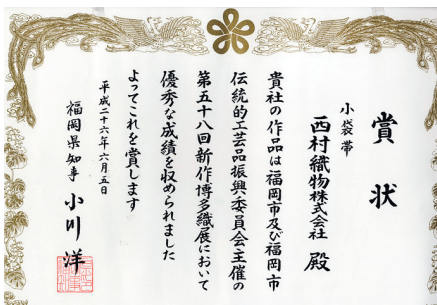 賞状
小袋帯
西村織物株式会社 殿
貴社の作品は福岡市及び福岡市
伝統的工芸品振興委員会主催の
第五十八回新作博多織展において
優秀な成績を収められました
よってこれを賞します
平成二十六年六月五日
福岡県知事 小川 洋